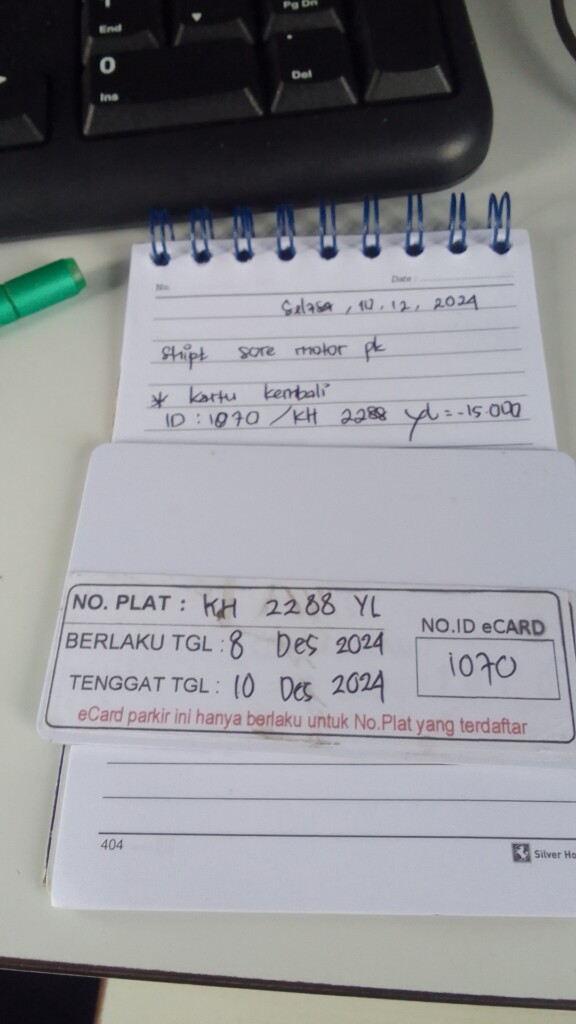 1
End
Pg Dn
0
Ins
.
Del
No.
Date :
Selasa , 10 . 12 , 2024
Shipt sore motor pk
* kartu kembali
ID : 1070 / KH 2288 yL = -15.000
NO. PLAT : KH 2288 YL
BERLAKU TGL : 8 Des 2024
TENGGAT TGL : 10 Des 2024
NO.ID eCARD
1070
eCard parkir ini hanya berlaku untuk No.Plat yang terdaftar
404
Silver Ho